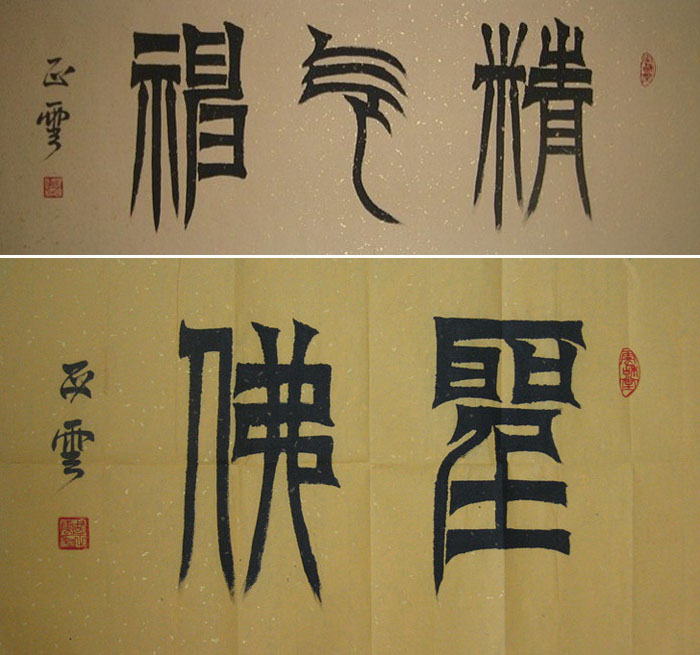 精气神
正雲
聖佛
正雲